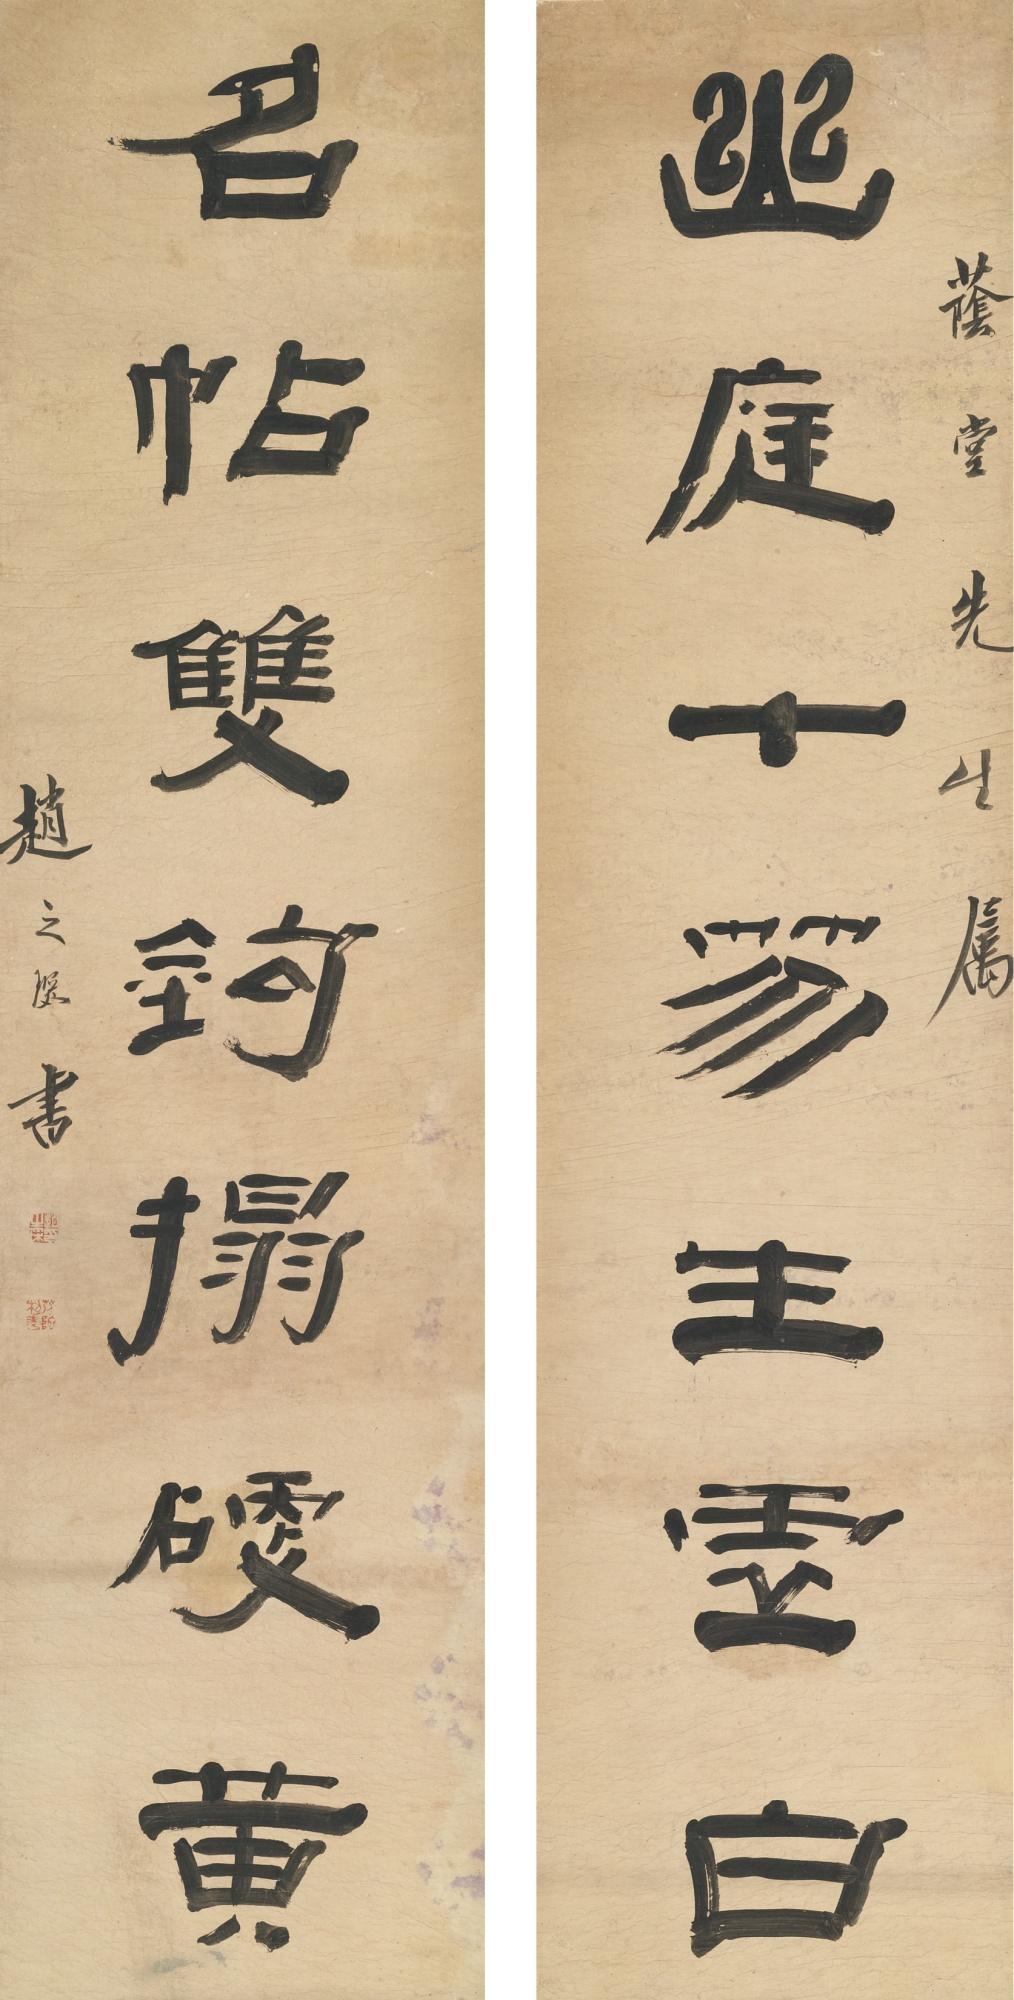 蔭堂先生屬
幽庭十笏生虛白
名帖雙鉤搨硬黃
趙之琛書